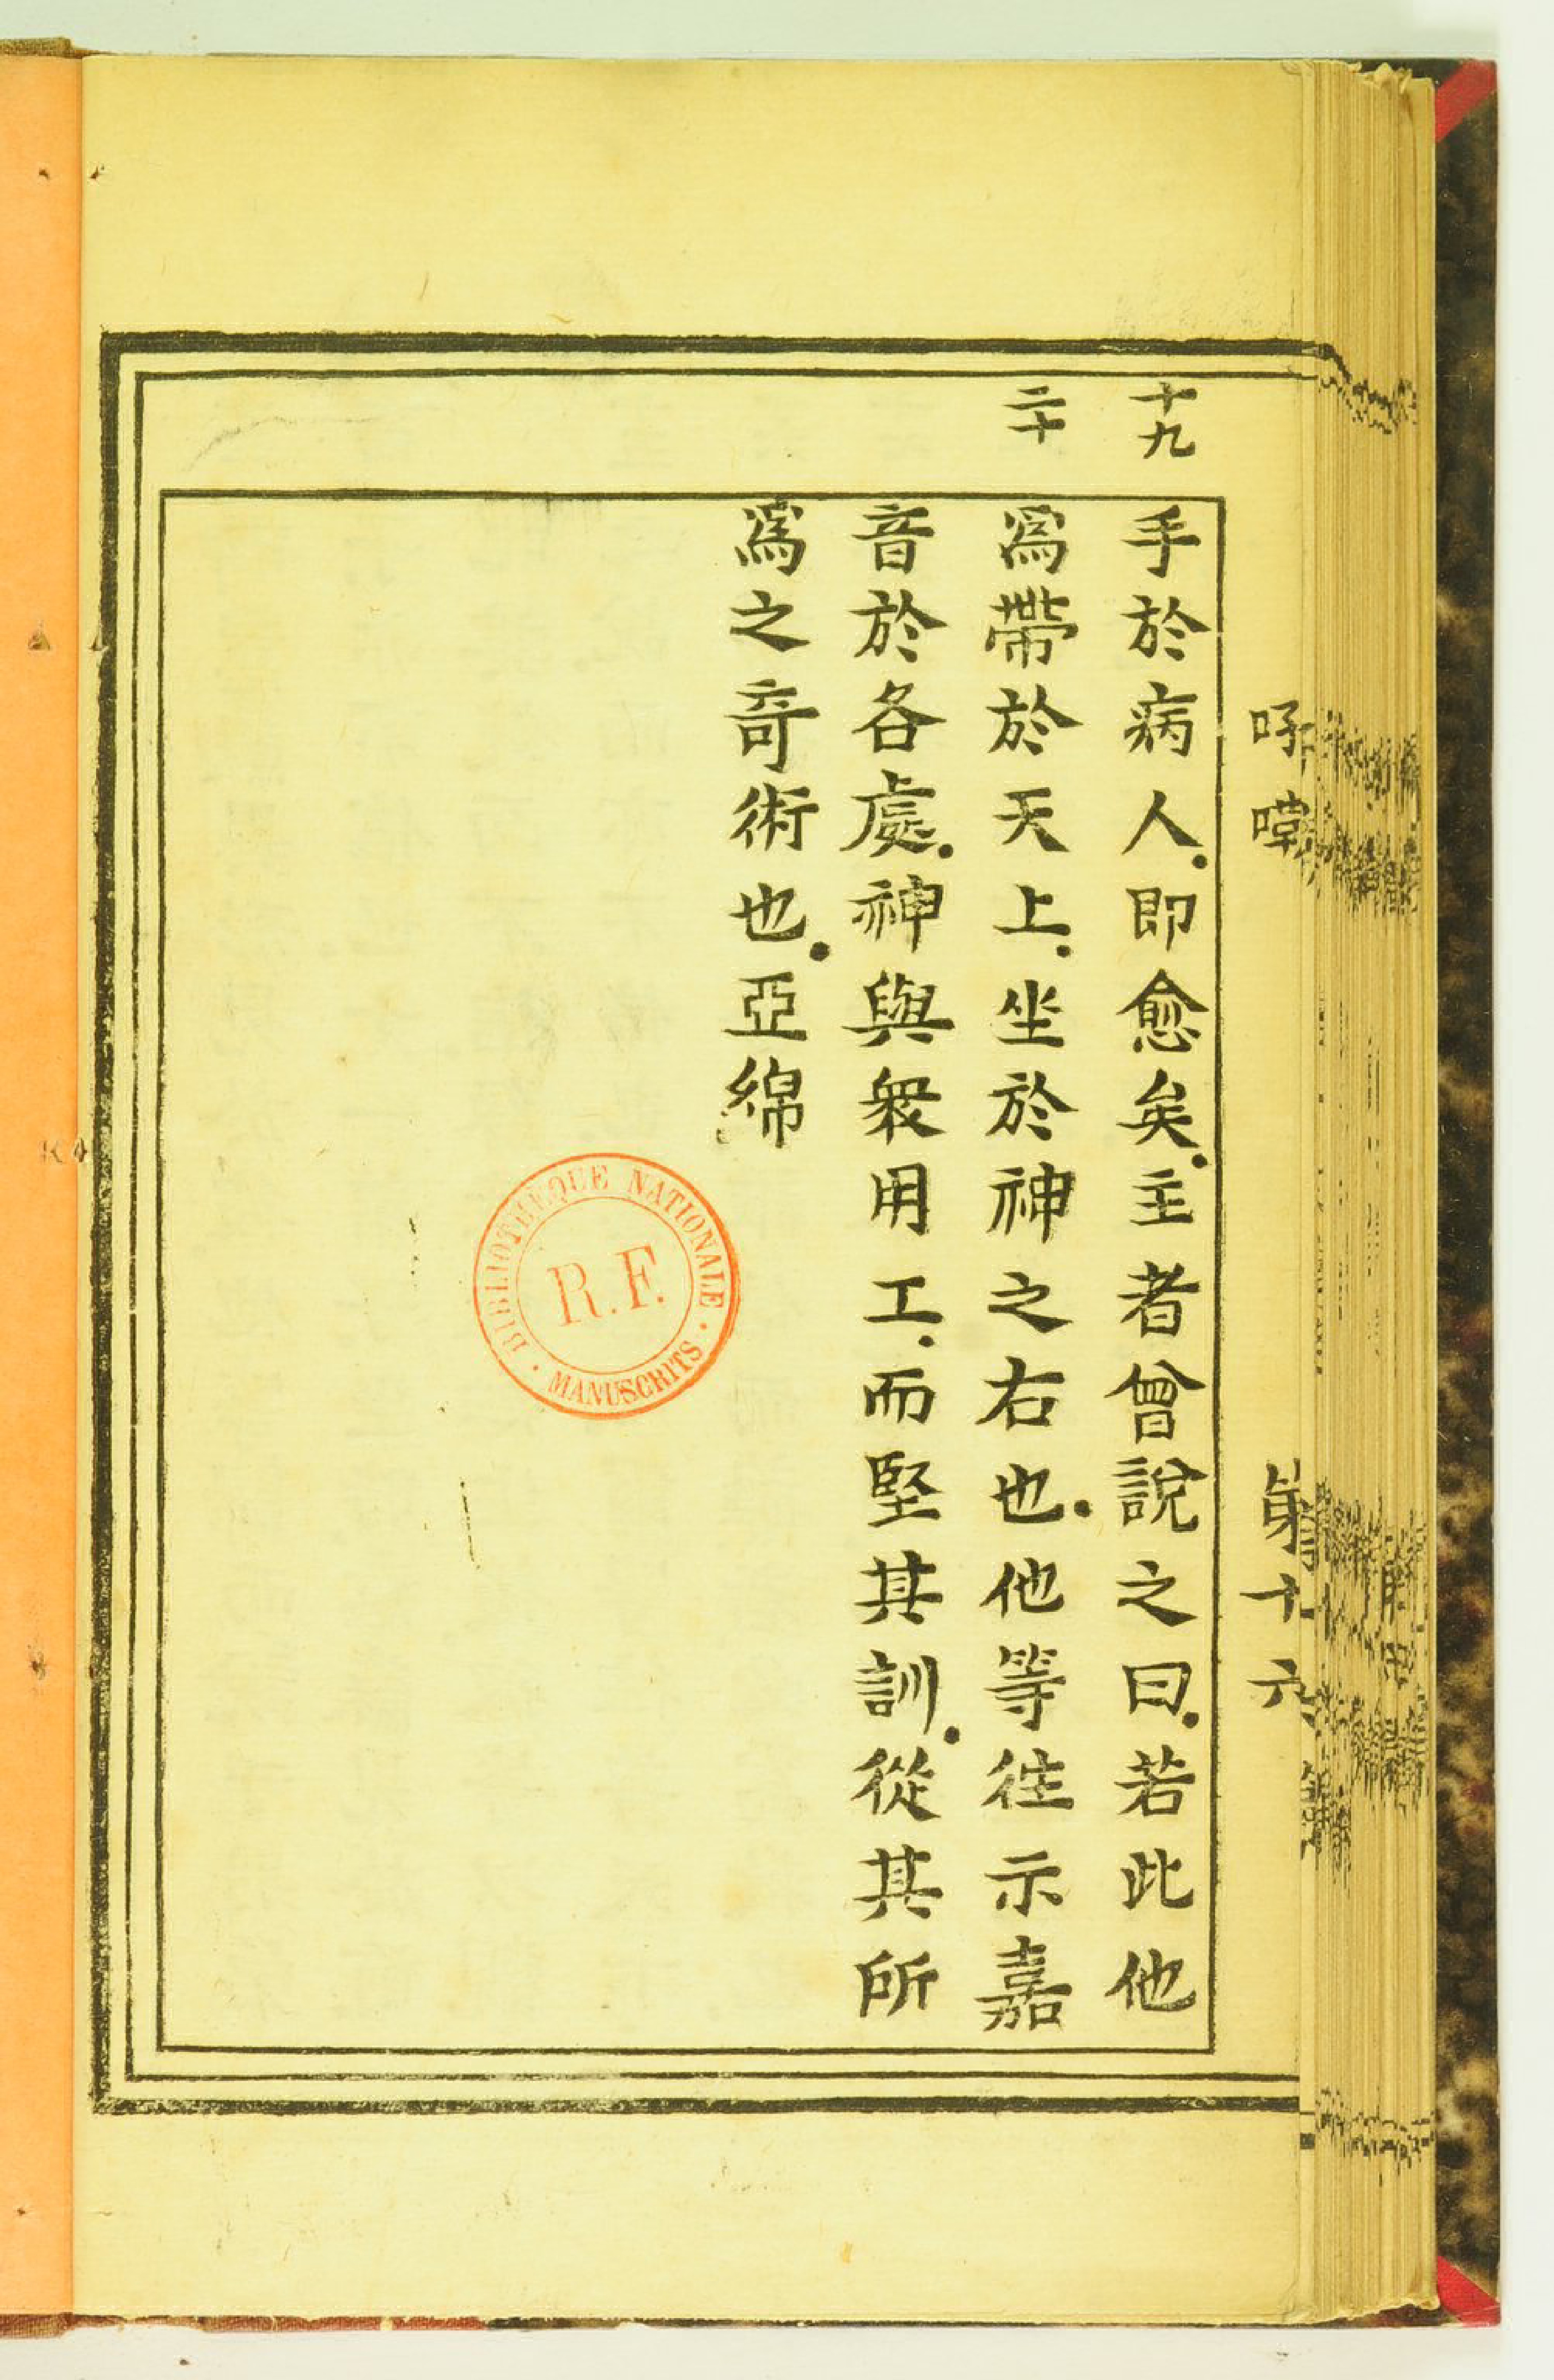 十九
手於病人.即愈矣.主者曾說之曰.若此他
二十
爲帶於天上.坐於神之右也.他等徃示嘉
音於各處.神與衆用工.而堅其訓.從其所
爲之竒術也.亞綿
第十六
BIBLIOTHEQUE NATIONALE
R.F.
MANUSCRITS